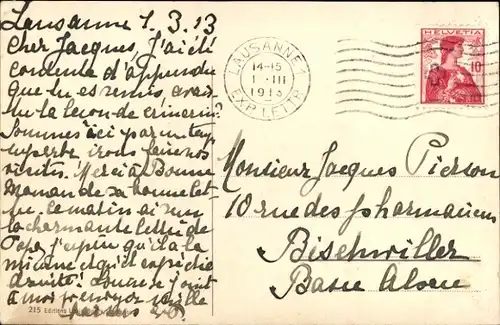 Lausanne 1.3.13
Cher Jacques, J'ai été
contente d'apprendre
que tu es remis, avez
tu la leçon de
Sommes ici par un temps
superbe irons faire nos
visites. Merci à Bonne
Maman de sa bonne let-
ce matin ai reçu
la charmante lettre de
Papa j'espère qu'il a la
mienne et qu'il expédie
de suite! Louise joint
à moi pour
215 Editions
LAUSANNE 1
14-15
1-III
1913
EXP. LETTR.
HELVETIA
10
Monsieur Jacques Pierson
10 rue des pharmaciens
Bischwiller
Basse Alsace